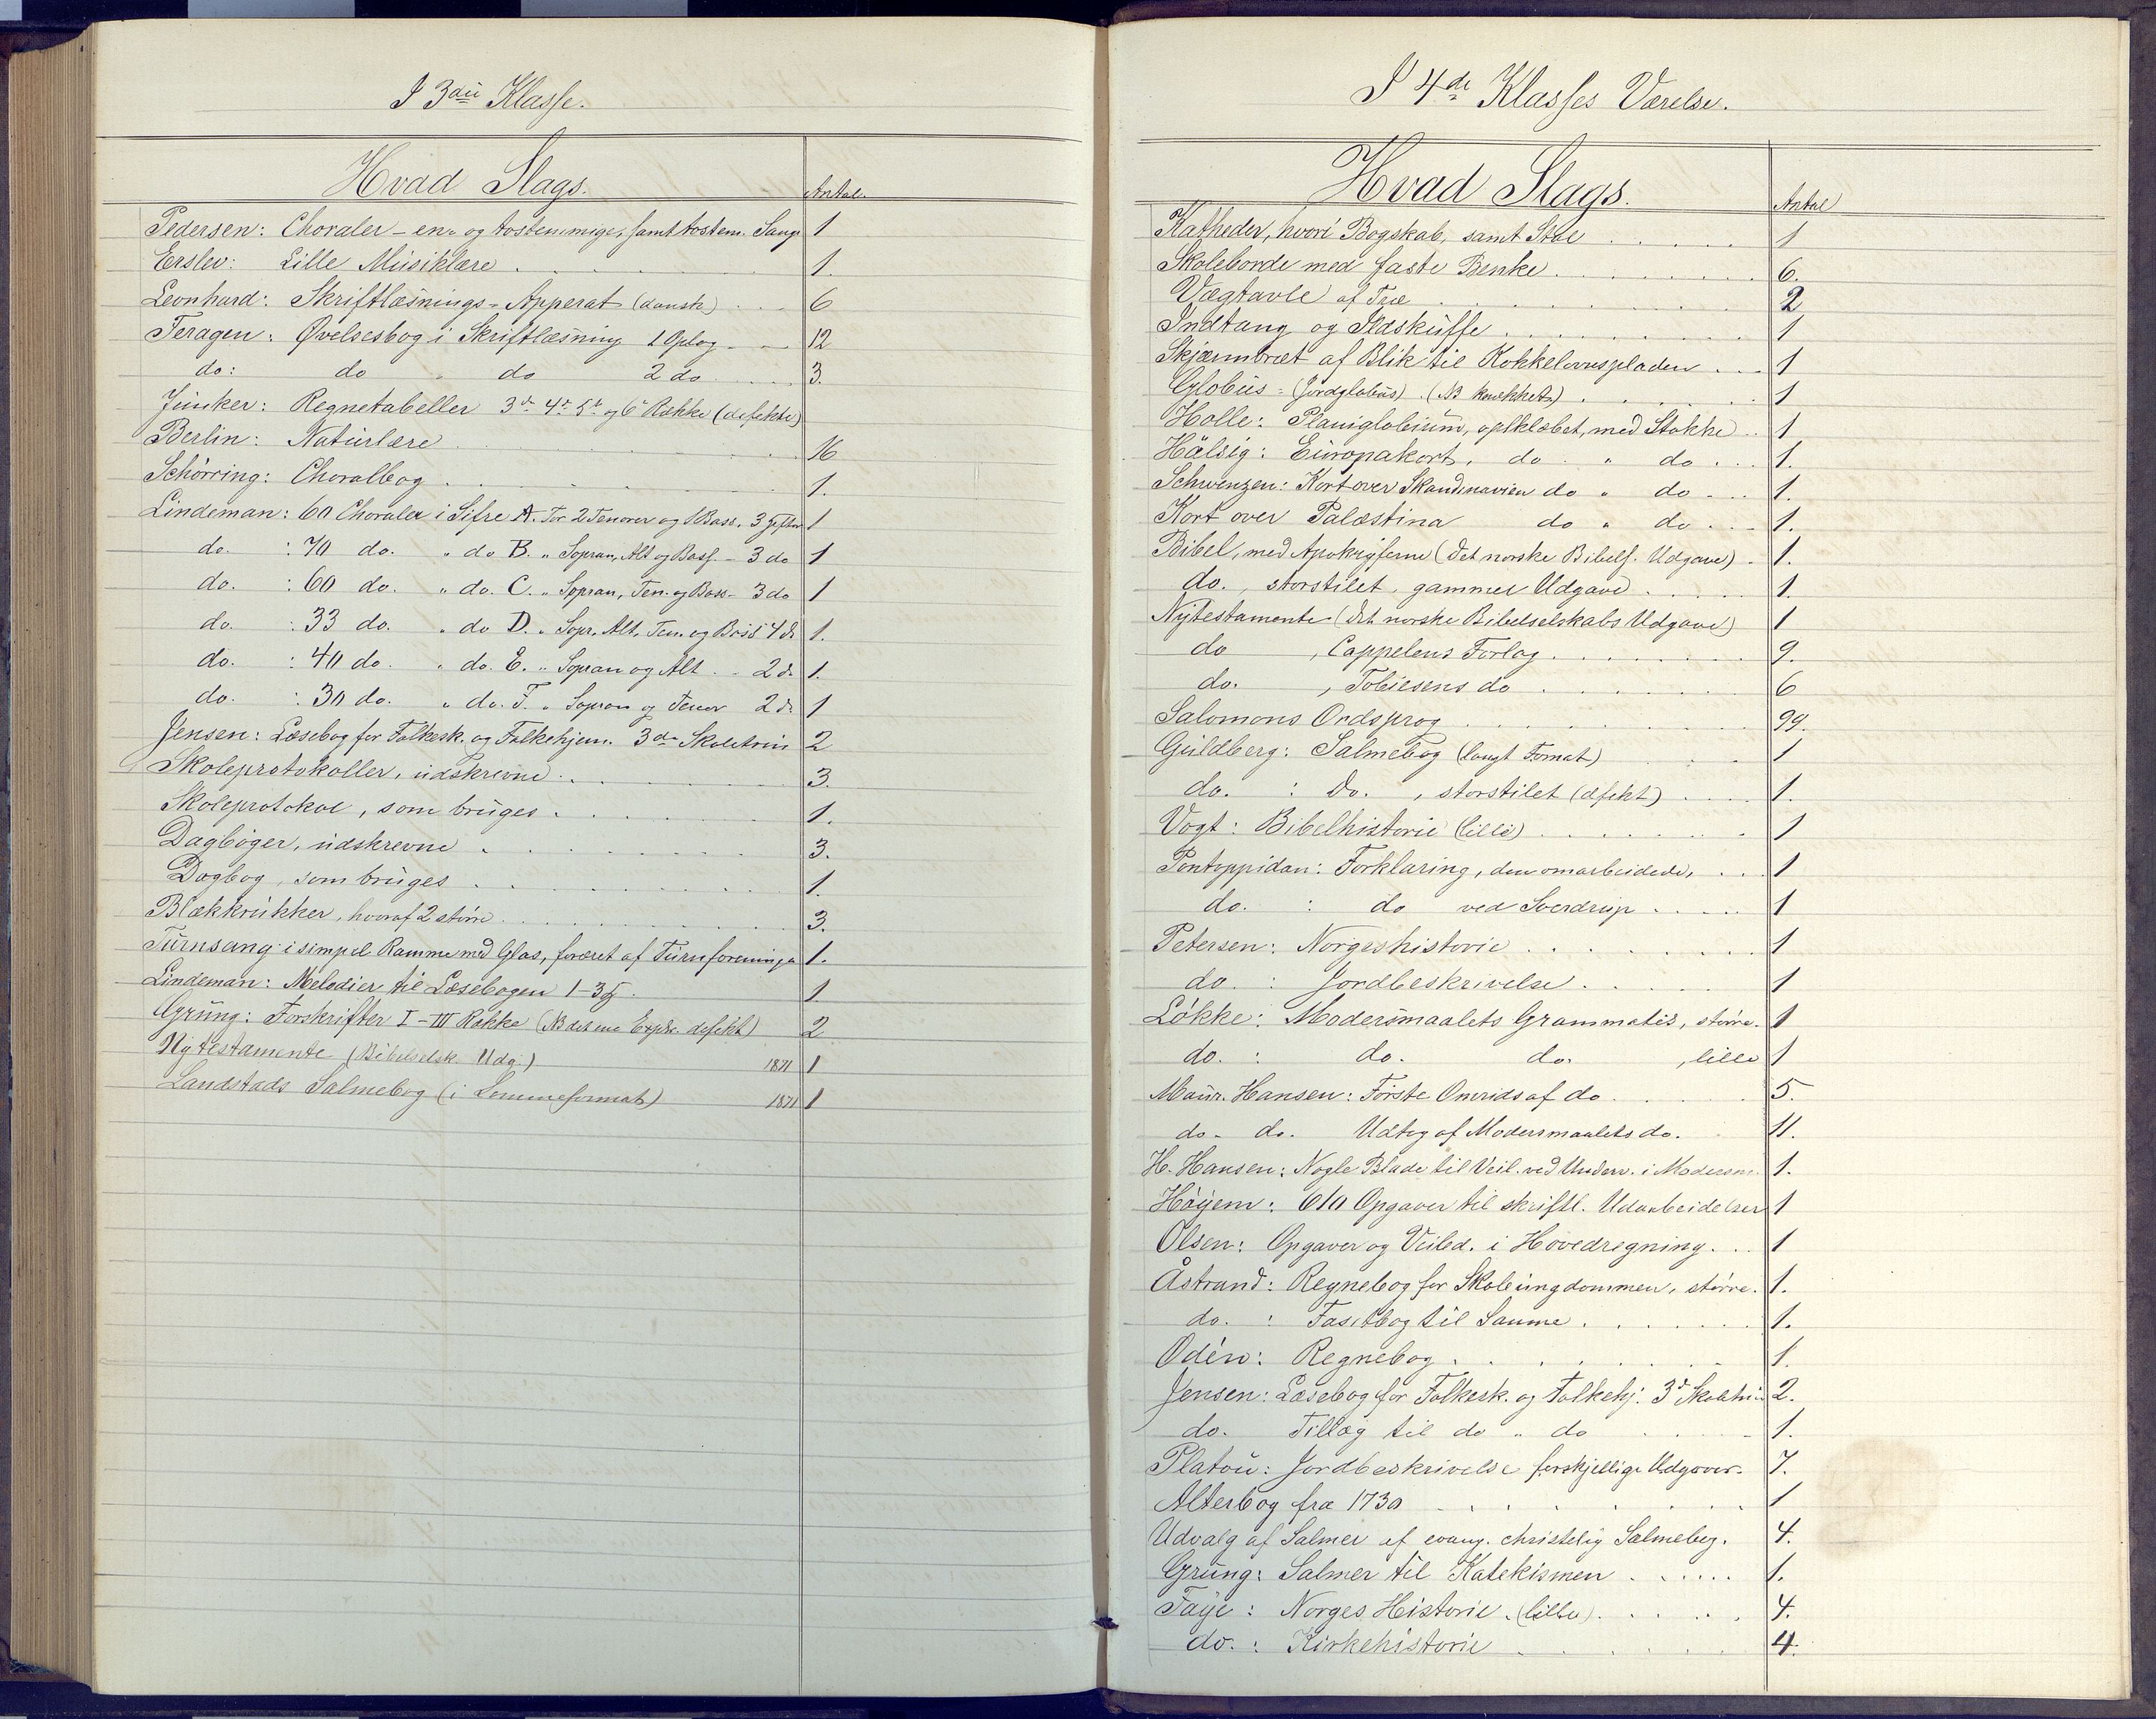 I 3die Klasse.
Hvad Slags. Antal.
Pedersen: Choraler - en- og tostemmige, samt tostem. Sange 1
Erslev: Lille Musiklære 1.
Leonhard: Skriftlæsnings-Apperat (dansk) 6
Feragen: Øvelsesbog i Skriftlæsning 1 Oplag 12
do: do do 2 do 3.
Junker: Regnetabeller 3de 4de 5te og 6te Række (defekte)
Berlin: Naturlære 16
Schörring: Choralbog 1.
Lindeman: 60 Choraler i Sifre A. For 2 Tenorer og 1 Bass. 3 Hefter 1
do. : 70 do. " do B. " Sopran, Alt og Bass. - 3 do 1
do. : 60 do. " do. C. " Sopran, Ten. og Bass - 3 do 1
do. : 33 do. " do D. " Sopr. Alt. Ten. og Bass 4 do 1.
do. : 40 do. " do. E. " Sopran og Alt - 2 do 1.
do. : 30 do. " do. F. " Sopran og Tenor 2 do 1
Jensen: Læsebog for Folkesk. og Folkehjem. 3de Skoletrin 2
Skoleprotokoller, udskrevne 3.
Skoleprotokol, som bruges 1.
Dagbøger, udskrevne 3.
Dagbog, som bruges 1.
Blækkrukker, hvoraf 2 större 3.
Turnsang i simpel Ramme med Glas, foræret af Turnforeningen 1.
Lindeman: Melodier til Læsebogen 1-3 1
Grüng: Forskrifter I-III Række (NB det ene Expl. defekt) 2
Nytestamente (Bibelselsk. Udg.) 1871 1
Landstads Salmebog (i Lommeformat) 1871 1
I 4de Klasses Værelse.
Hvad Slags. Antal
Katheder, hvori Bogskab, samt Stol 1
Skoleborde med faste Benke 6.
Vægtavle af Træ 2
Indtang og Ildskuffe 1
Skjærmbræt af Blik til Kakkelovnspladen 1
Globus - (Jordglobus) . (NB knækket) 1
Holle: Planiglobium, opklæbet, med Stokke 1
Hälsig: Europakort, do " do 1.
Schwenzen: Kort over Skandinavien do " do 1.
Kort over Palæstina do " do 1.
Bibel, med Apokryferne (det norske Bibels. Udgave) 1.
do., storstilet, gammel Udgave 1.
Nytestamente (det norske Bibelselskabs Udgave) 1
do , Cappelens Forlag 9.
do. , Tobiesens do 6
Salomons Ordsprog 99.
Guldberg: Salmebog (langt Format) 1
do. : do. , storstilet (defekt) 1.
Vogt: Bibelhistorie (lille) 1
Pontoppidan: Forklaring, den omarbeidede, 1
do. : do ved Sverdrup 1
Petersen: Norgeshistorie 1
do. : Jordbeskrivelse 1
Løkke: Modersmaalets Grammatik, större. 1
do. : do. do. , lille 1
Maur. Hansen: Første Omrids af do. 5.
do. do. Udtog af Modersmaalets do. 11.
H. Hansen: Nogle Blade til Veil. ved Underv. i Modersm. 1.
Höyem: 610 Opgaver til skriftl. Udarbeidelser 1
Olsen: Opgaver og Veiled. i Hovedregning. 1
Åstrand: Regnebog for Skoleungdommen, större. 1.
do. : Fasitbog til Samme 1.
Odén: Regnebog 1.
Jensen: Læsebog for Folkesk. og Folkehj. 3de Skoletrin 2.
do. Tillæg til do " do 1.
Platou: Jordbeskrivelse forskjellige Udgaver 7.
Alterbog fra 1730 1
Udvalg af Salmer af evang. christelig Salmebog. 4.
Grüng: Salmer til Katekismen 1.
Faye: Norges Historie (lille) 4.
do. : Kirkehistorie 4.